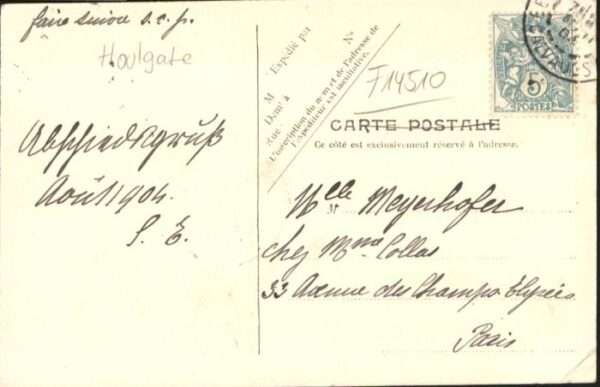 faire suivre s.v.p.
Houlgate
Abschiedsgruß
Août 1904.
S. E.
M
Expédié par
Demt à
Rue
No
L'inscription du nom et de l'adresse de
l'expéditeur est facultative.
F14510
5c
POSTES
04
CALVADOS
CARTE POSTALE
Ce côté est exclusivement réservé à l'adresse.
Mlle Meyerhofer
chez Mme Collas
33 Avenue des Champs Elysées
Paris